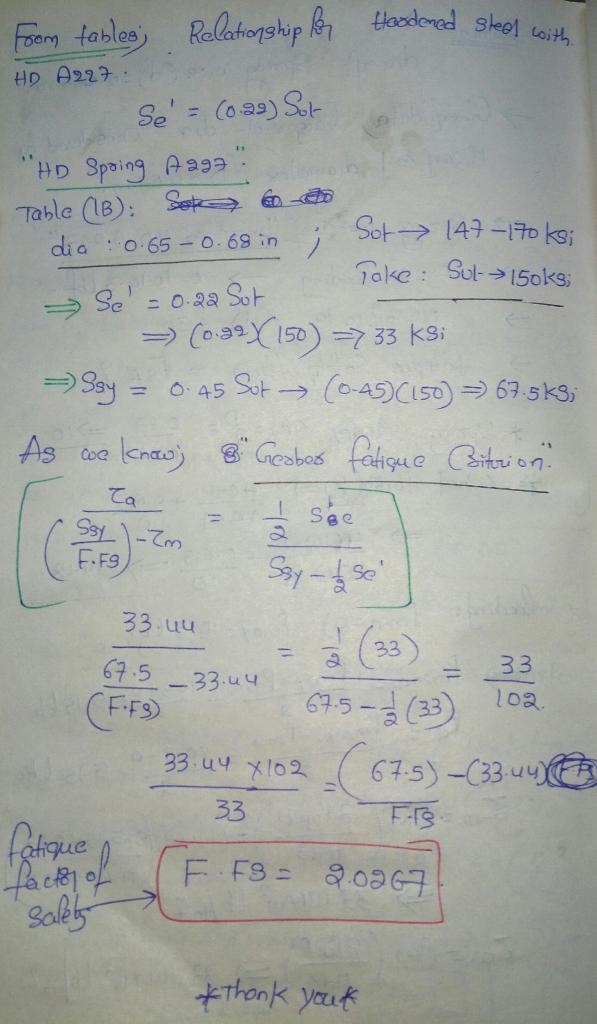 From tables; Relationship for Hardened steel with
HD A227:
Se' = (0.22) Sut
"HD Spring A227":
Table (1B):
dia : 0.65 – 0.68 in ; Sut → 147 – 170 ksi
Take : Sut → 150 ksi
⇒ Se' = 0.22 Sut
⇒ (0.22)(150) ⇒ 33 KSi
⇒ Ssy = 0.45 Sut → (0.45)(150) ⇒ 67.5 KSi
As we know; "Gerber fatigue Criterion".
τa / ((Ssy / F.FS) – τm) = (1/2 Se') / (Ssy – 1/2 Se')
33.44 / (67.5 / (F.FS) – 33.44) = 1/2 (33) / (67.5 – 1/2 (33)) = 33 / 102.
33.44 × 102 / 33 = (67.5) / F.FS – (33.44)
fatigue
factor of
Safety
F.FS = 2.0267.
*Thank you*